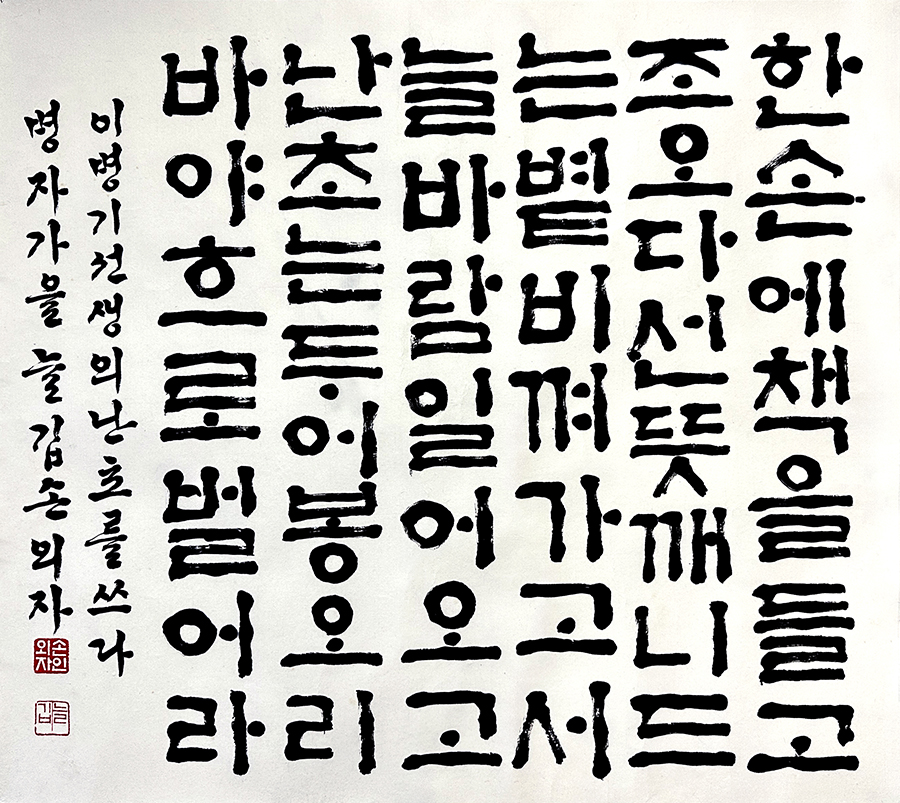 한손에책을들고
조오다선뜻깨니드
는볕비껴가고서
늘바람일어오고
난초는두어봉오리
바야흐로벌어라
이병기선생의난초를쓰다
병자가을늘김손외자
손인외자
늘김